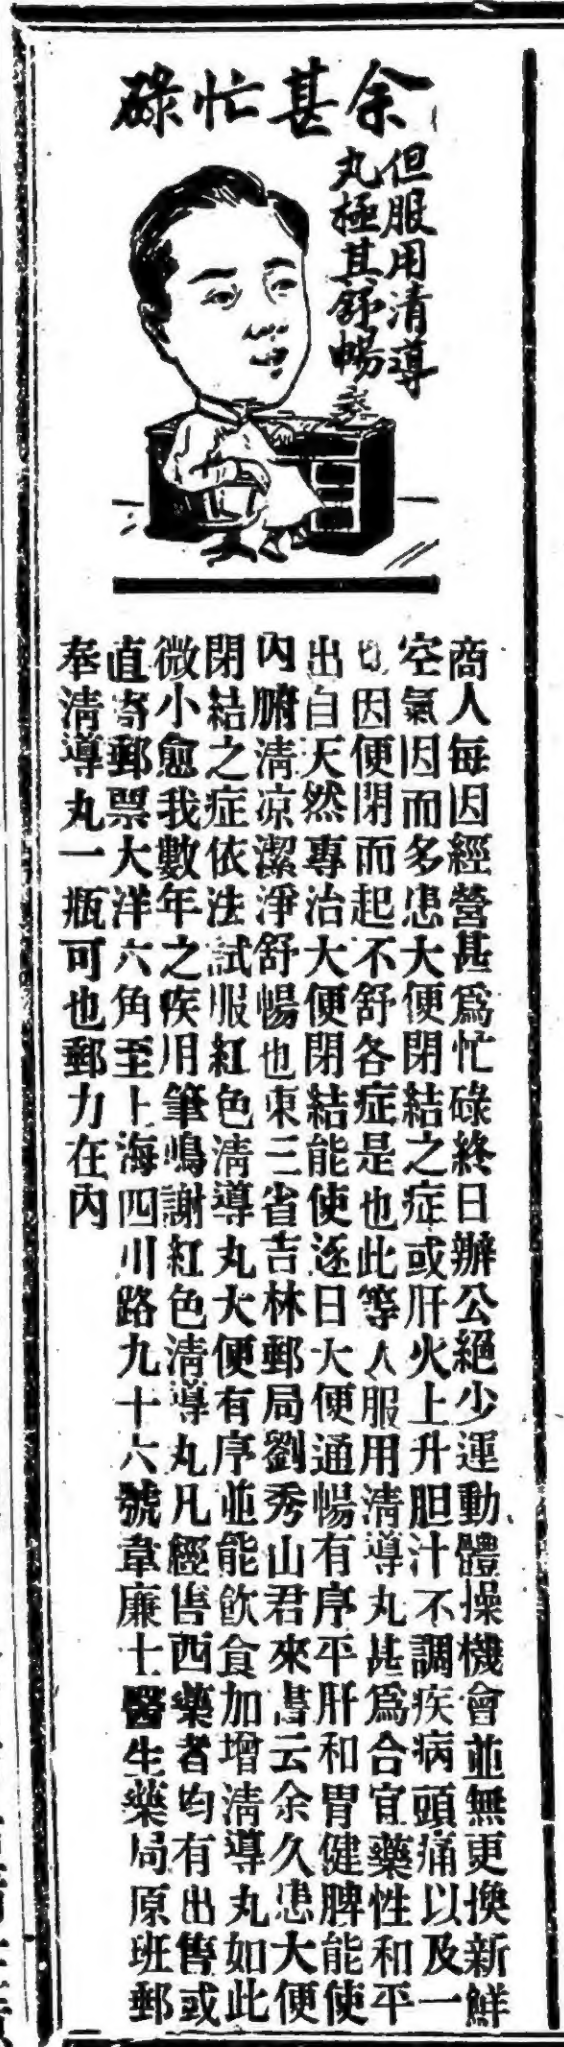 余甚忙碌
但服用清導
丸極其舒暢
商人每因經營甚爲忙碌終日辦公絕少運動體操機會並無更換新鮮
空氣因而多患大便閉結之症或肝火上升胆汁不調疾病頭痛以及一
切因便閉而起不舒各症是也此等人服用清導丸甚爲合宜藥性和平
出自天然專治大便閉結能使逐日大便通暢有序平肝和胃健脾能使
內腑清凉潔淨舒暢也東三省吉林郵局劉秀山君來書云余久患大便
閉結之症依法試服紅色清導丸大便有序並能飲食加增清導丸如此
微小愈我數年之疾用筆鳴謝紅色清導丸凡經售西藥者均有出售或
直寄郵票大洋六角至上海四川路九十六號韋廉士醫生藥局原班郵
奉清導丸一瓶可也郵力在內